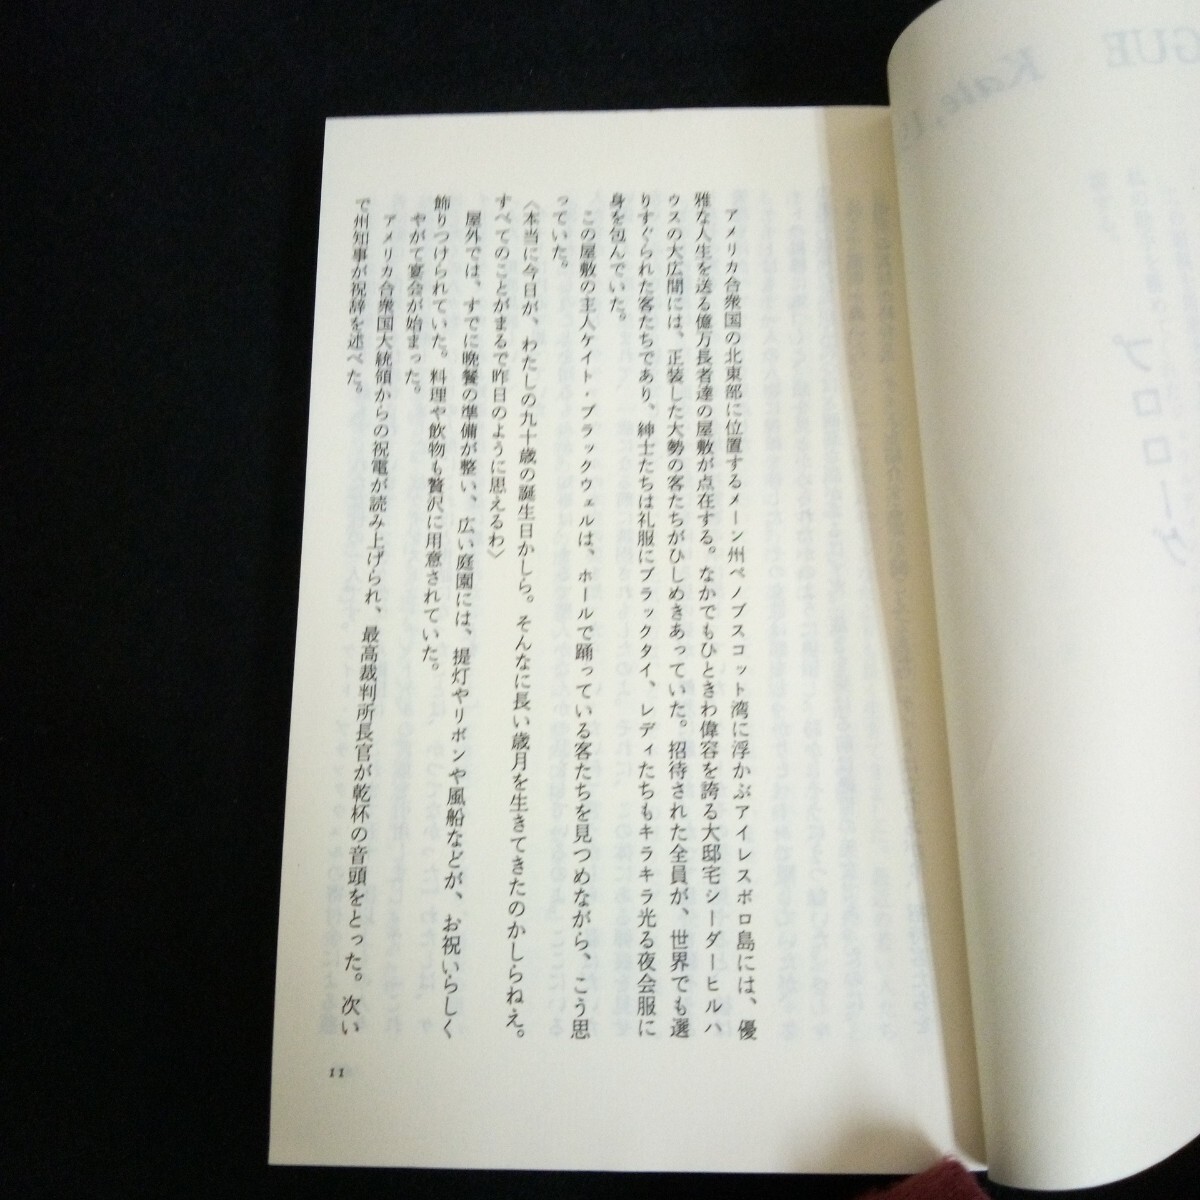 アメリカ合衆国の北東部に位置するメーン州ペノブスコット湾に浮かぶアイレスボロ島には、優
雅な人生を送る億万長者達の屋敷が点在する。なかでもひときわ偉容を誇る大邸宅シーダーヒルハ
ウスの大広間には、正装した大勢の客たちがひしめきあっていた。招待された全員が、世界でも選
りすぐられた客たちであり、紳士たちは礼服にブラックタイ、レディたちもキラキラ光る夜会服に
身を包んでいた。
この屋敷の主人ケイト・ブラックウェルは、ホールで踊っている客たちを見つめながら、こう思
っていた。
〈本当に今日が、わたしの九十歳の誕生日かしら。そんなに長い歳月を生きてきたのかしらねえ。
すべてのことがまるで昨日のように思えるわ〉
屋外では、すでに晩餐の準備が整い、広い庭園には、提灯やリボンや風船などが、お祝いらしく
飾りつけられていた。料理や飲物も贅沢に用意されていた。
やがて宴会が始まった。
アメリカ合衆国大統領からの祝電が読み上げられ、最高裁判所長官が乾杯の音頭をとった。次い
で州知事が祝辞を述べた。
11
GUE
Kate, 1
プロローグ